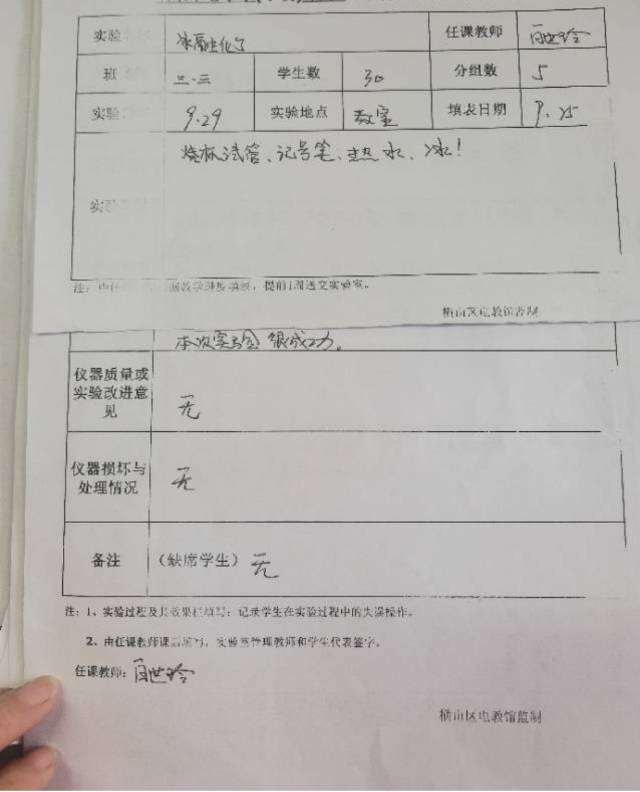 实验 冰融化了 任课教师
班 三.三 学生数 30 分组数 5
实验 9.29 实验地点 教室 填表日期 9.25
烧杯试管、记号笔、热水、冰!
实
注: 由任 据教学进度填领, 提前1周送交实验室。
横山区电教馆监制
本次实验很成功。
仪器质量或
实验改进意
见 无
仪器损坏与
处理情况 无
备注 (缺席学生) 无
注: 1、实验过程及其效果栏填写: 记录学生在实验过程中的失误操作。
2、由任课教师课后填写, 实验室管理教师和学生代表签字。
任课教师:
横山区电教馆监制